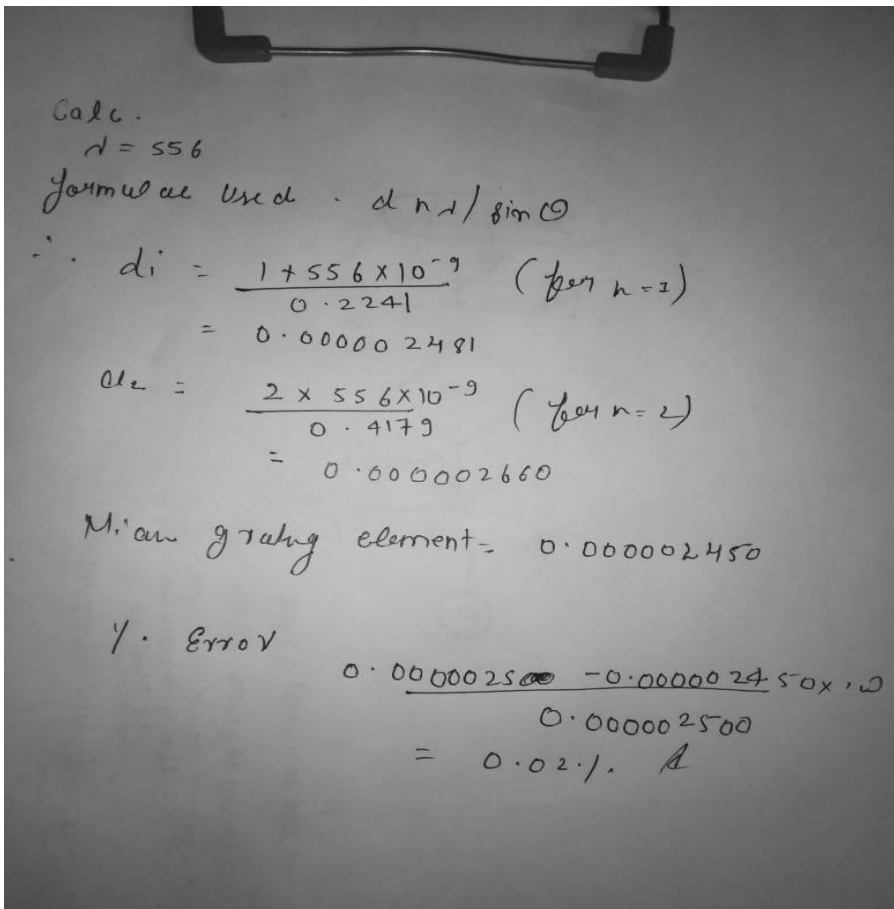 Calc.
λ = 556
formulae used . d nλ/sinθ
∴ d1 = 1 + 556 × 10^-9 / 0.2241 (for n=1)
= 0.000002481
d2 = 2 × 556 × 10^-9 / 0.4179 (for n=2)
= 0.000002660
Mean grating element = 0.000002450
%. Error
0.000002500 - 0.000002450 ×
0.000002500
= 0.02%.